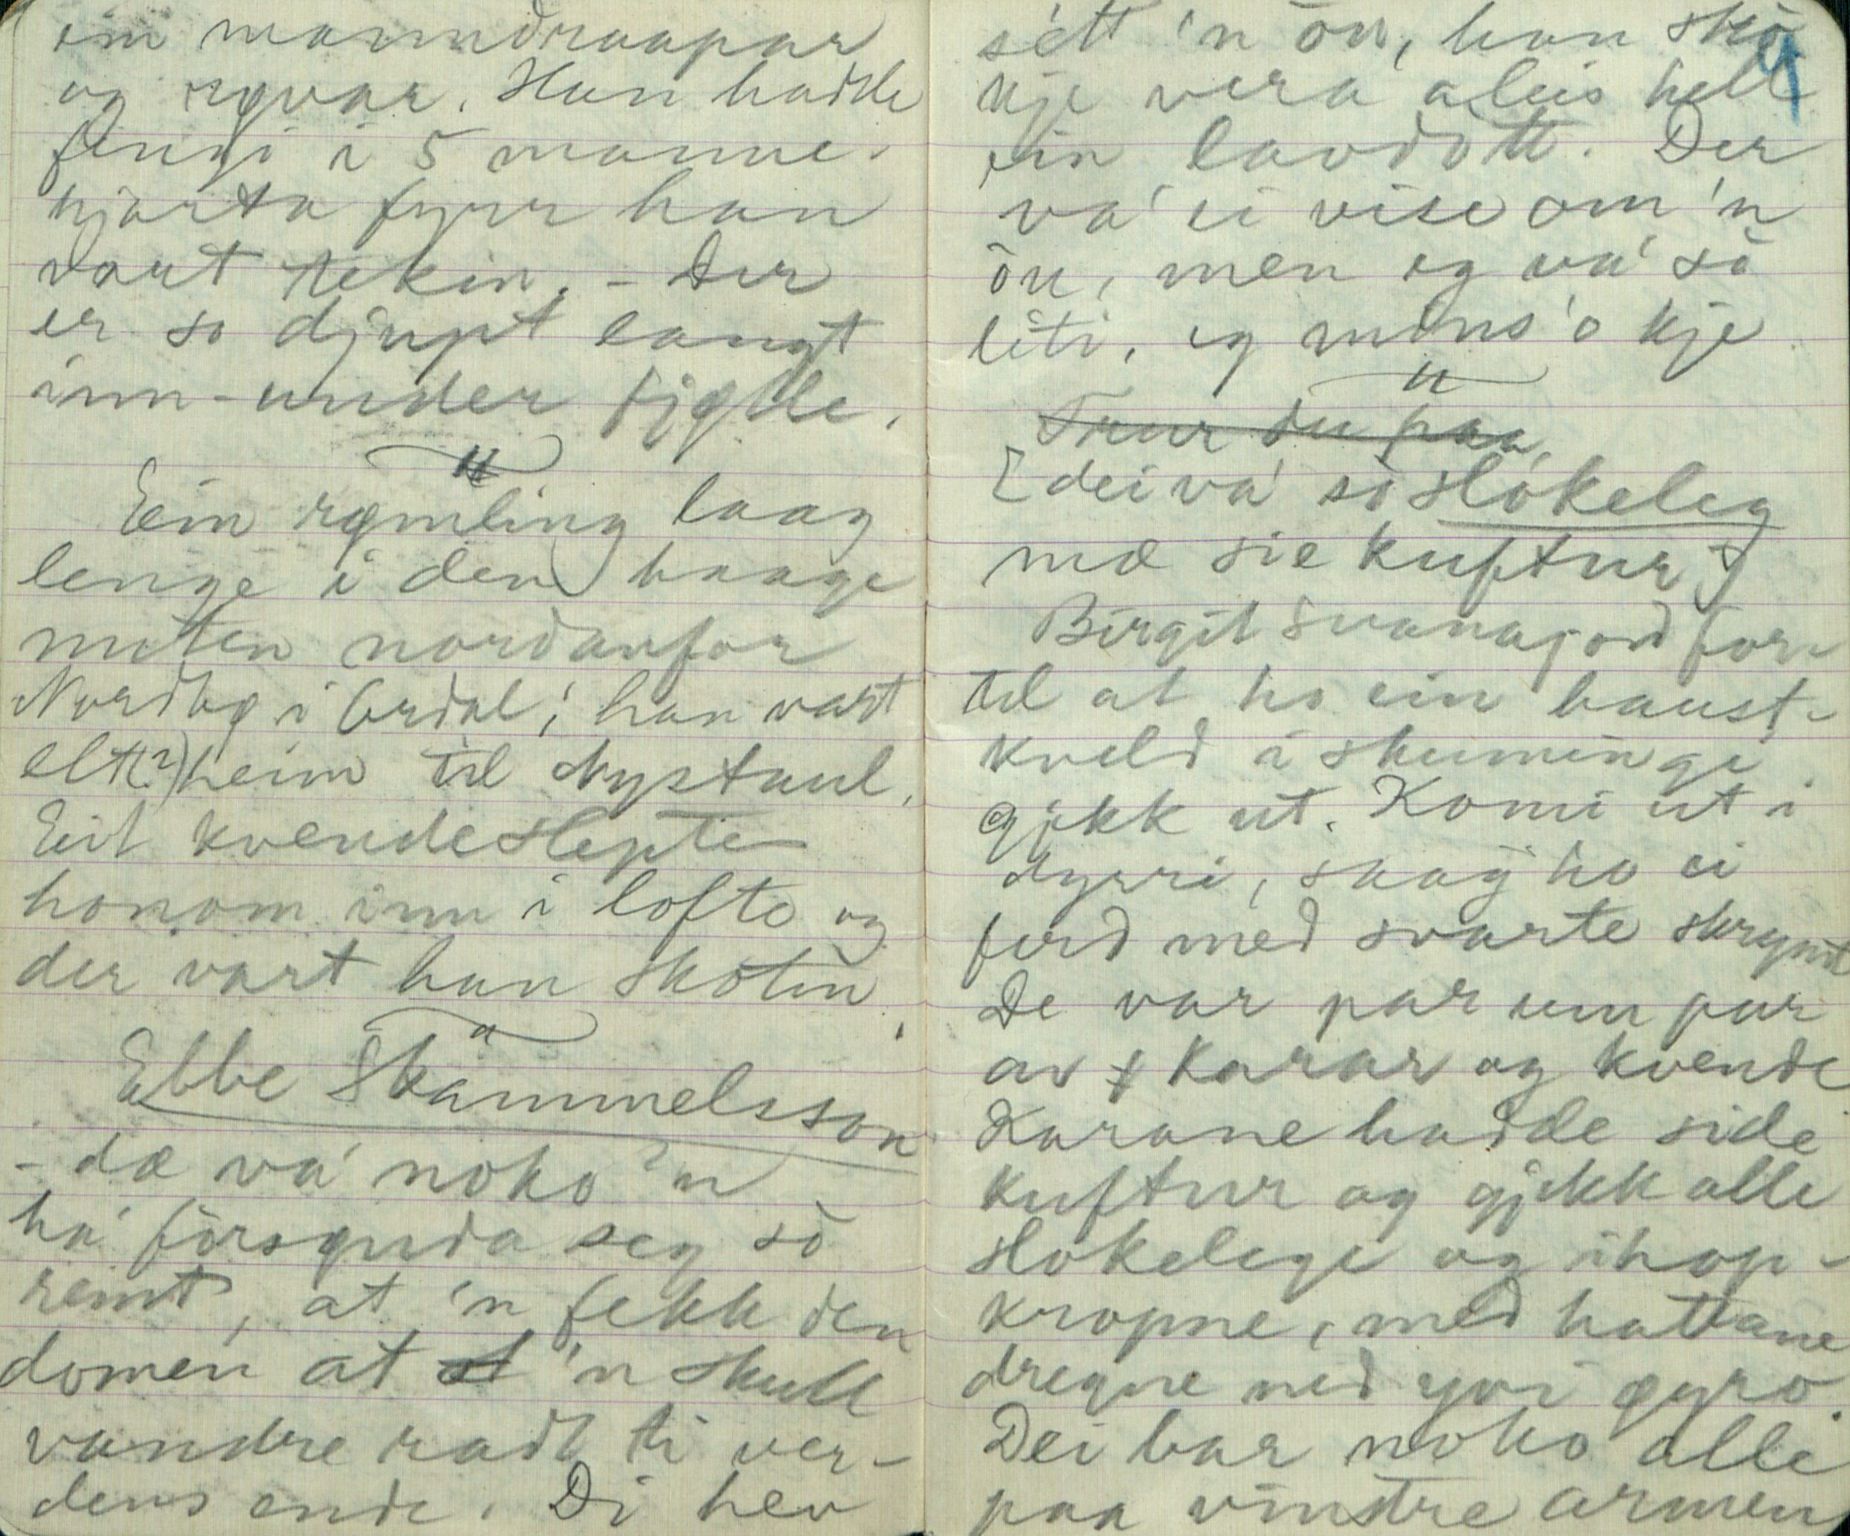 ein manndraapar
og røvar. Han hadde
fengi i 5 manne-
hjarta fyrr han
vart tekin. - Der
er so djupt langt
inn-under fjølle.
Ein rømling laag
lenge i den haage
nuten nordanfor
Nordbø i Ordal; han vart
elt(?) heim til Nystaul.
Eit kvende slepte
honom inn i lofto og
der vart han skotin.
Ebbe Skammelsson
- dæ va' noko 'n
ha' forsynda seg so
reint, at 'n fekk den
domen at 'n skull
vandre radt ti ver-
dens ende. Di hev
sétt 'n òu, han sko
kje vera aleis hell
ein lavdott. Der
va' ei vise om 'n
òu, men eg va' so
liti, eg mins'o kje
Trur du paa
[dei va' so slokeleg
mæ sie kuftur]
Birgit Svanajord for-
tel at ho ein haust-
kveld i skumingi
gjekk ut. Komi ut i
dyrri, saag ho ei
ferd med svarte skrymt
De var par um par
av karar og kvende
Karane hadde side
kuftur og gjekk alle
slokelege og ihop-
kropne, med hattane
dregne ned yvi øyro.
Dei bar noko alle
paa vinstre armen